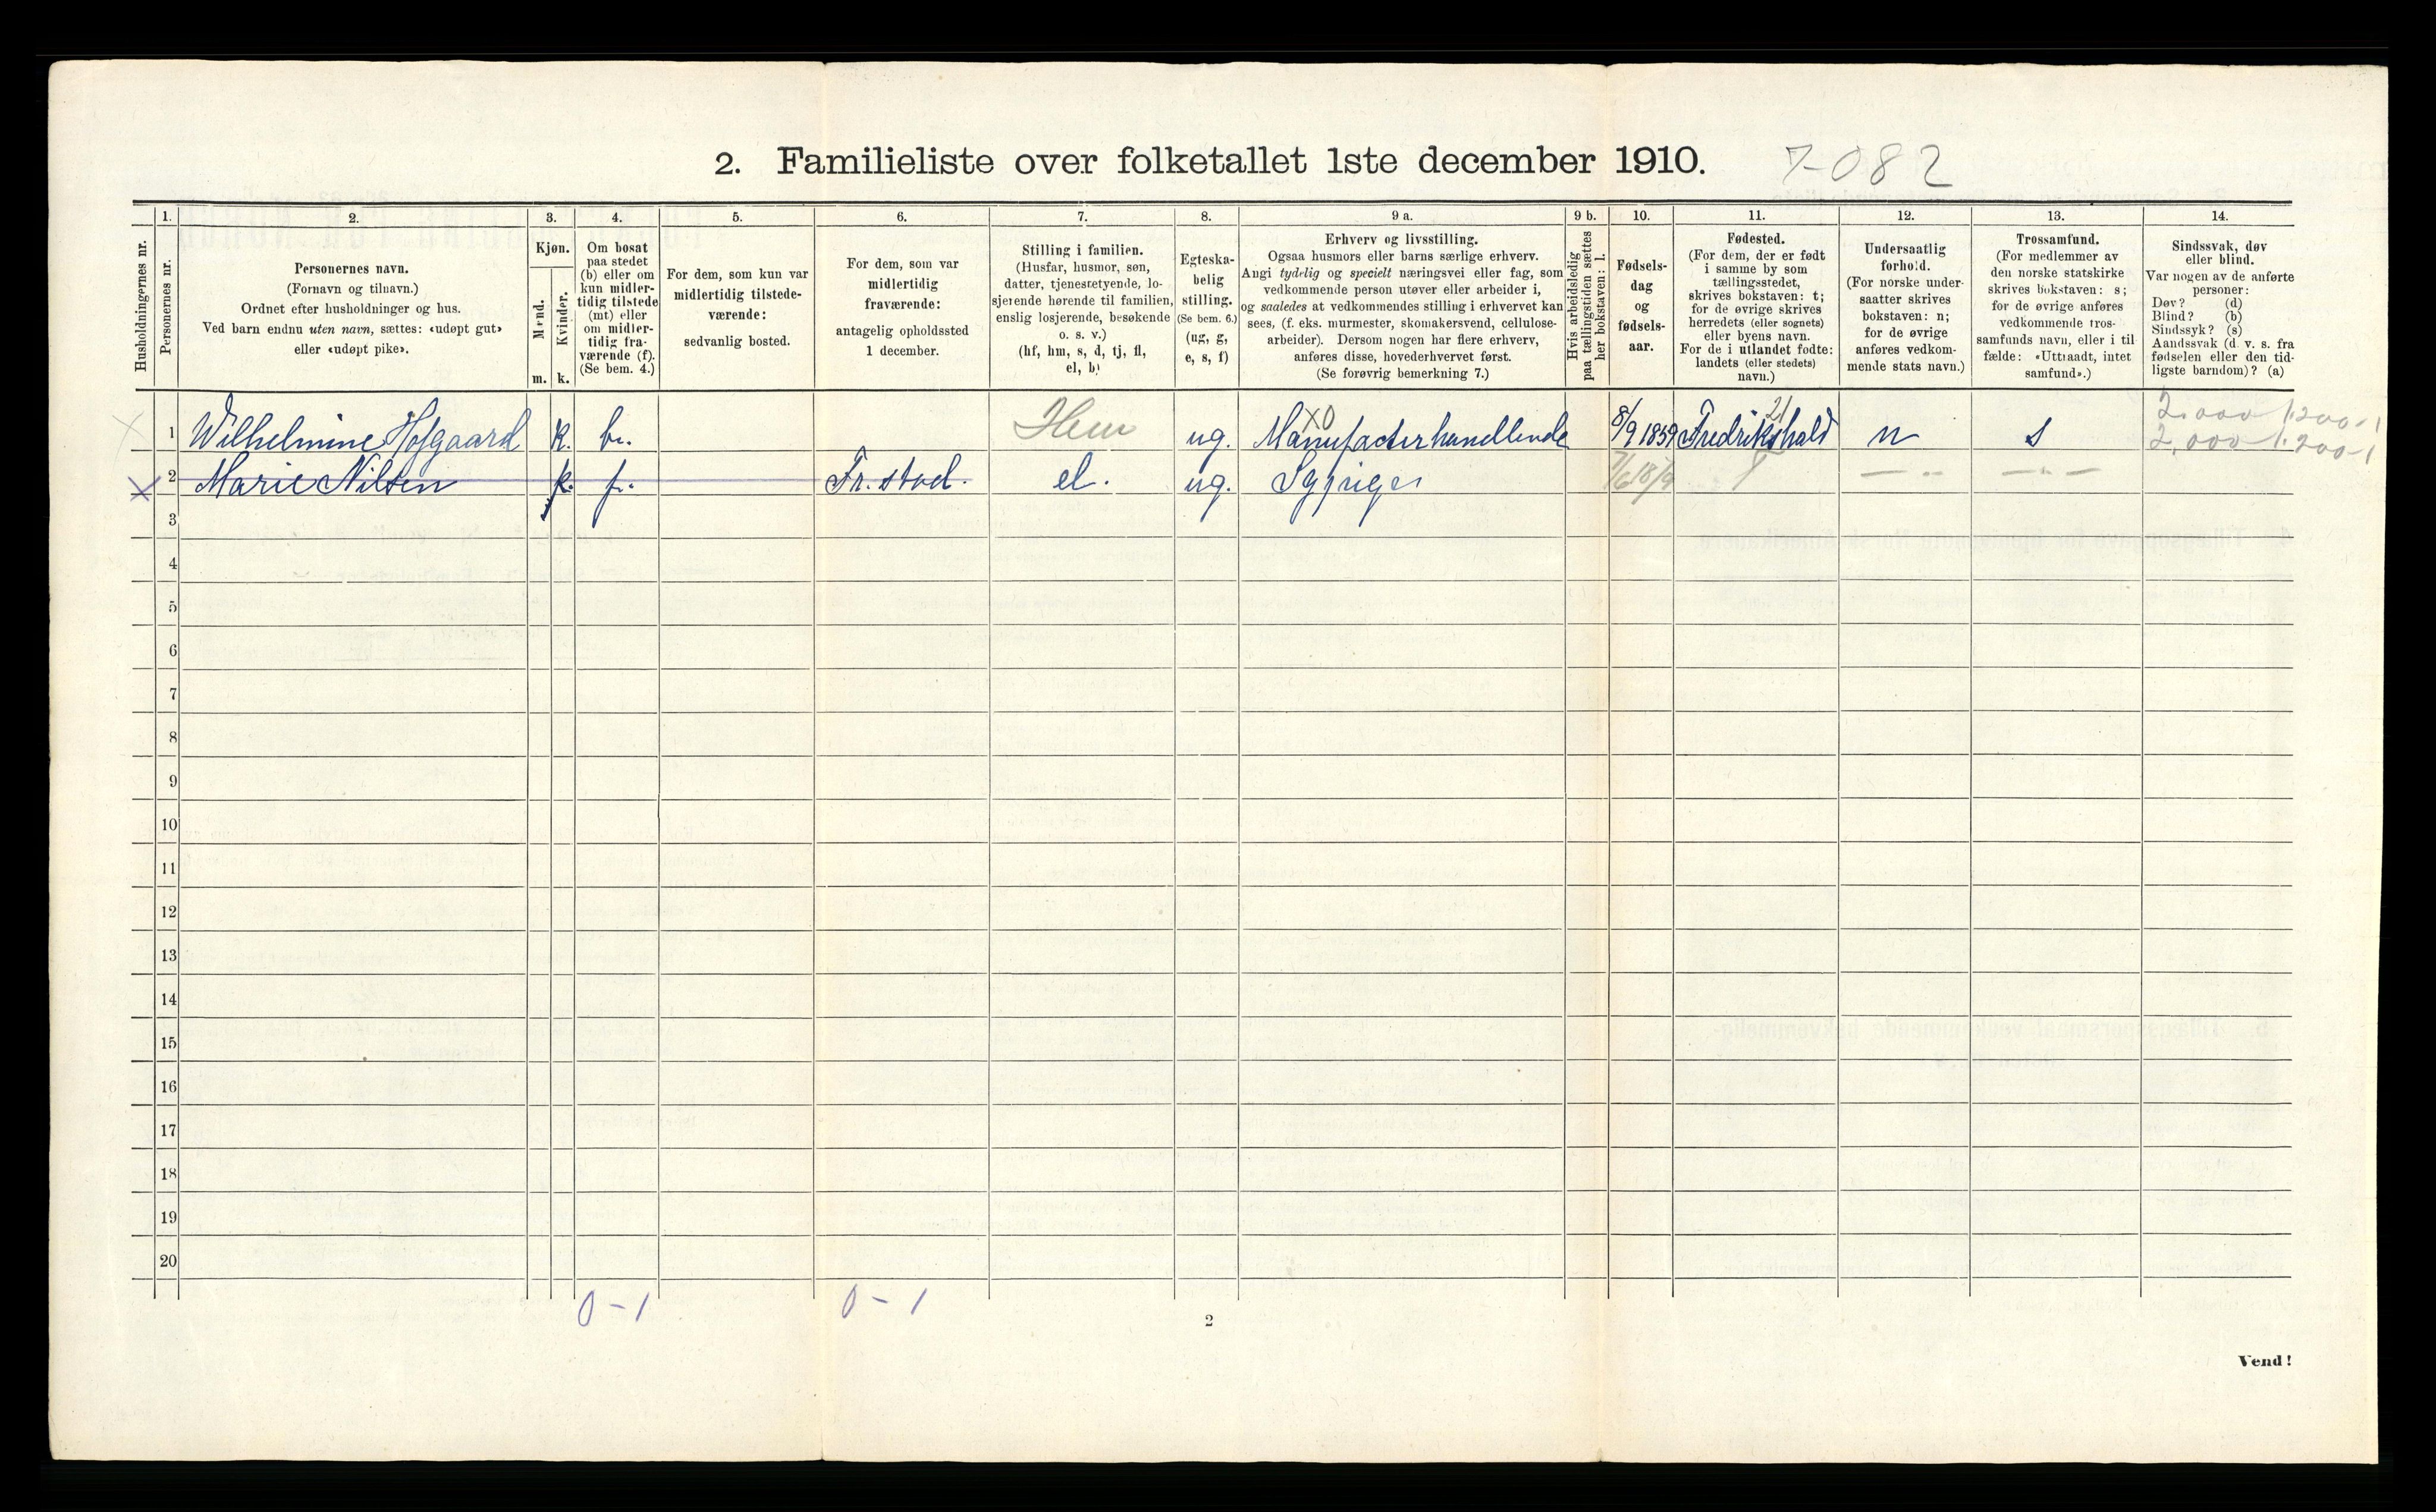 2. Familieliste over folketallet 1ste december 1910. 7-082
Husholdningernes nr.
1.
Personernes nr.
2.
Personernes navn.
(Fornavn og tilnavn.)
Ordnet efter husholdninger og hus.
Ved barn endnu uten navn, sættes: «udøpt gut»
eller «udøpt pike».
3.
Kjøn.
Mænd.
Kvinder.
m. k.
4.
Om bosat
paa stedet
(b) eller om
kun midler-
tidig tilstede
(mt) eller
om midler-
tidig fra-
værende (f).
(Se bem. 4.)
5.
For dem, som kun var
midlertidig tilstede-
værende:
sedvanlig bosted.
6.
For dem, som var
midlertidig
fraværende:
antagelig opholdssted
1 december.
7.
Stilling i familien.
(Husfar, husmor, søn,
datter, tjenestetyende, lo-
sjerende hørende til familien,
enslig losjerende, besøkende
o. s. v.)
(hf, hm, s, d, tj, fl,
el, b)
8.
Egteska-
belig
stilling.
(Se bem. 6.)
(ug, g,
e, s, f)
9 a.
Erhverv og livsstilling.
Ogsaa husmors eller barns særlige erhverv.
Angi tydelig og specielt næringsvei eller fag, som
vedkommende person utøver eller arbeider i,
og saaledes at vedkommendes stilling i erhvervet kan
sees, (f. eks. murmester, skomakersvend, cellulose-
arbeider). Dersom nogen har flere erhverv,
anføres disse, hovederhvervet først.
(Se forøvrig bemerkning 7.)
9 b.
Hvis arbeidsledig
paa tællingstiden sættes
her bokstaven: l.
10.
Fødsels-
dag
og
fødsels-
aar.
11.
Fødested.
(For dem, der er født
i samme by som
tællingsstedet,
skrives bokstaven: t;
for de øvrige skrives
herredets (eller sognets)
eller byens navn.
For de i utlandet fødte:
landets (eller stedets)
navn.)
12.
Undersaatlig
forhold.
(For norske under-
saatter skrives
bokstaven: n;
for de øvrige
anføres vedkom-
mende stats navn.)
13.
Trossamfund.
(For medlemmer av
den norske statskirke
skrives bokstaven: s;
for de øvrige anføres
vedkommende tros-
samfunds navn, eller i til-
fælde: «Uttraadt, intet
samfund».)
14.
Sindssvak, døv
eller blind.
Var nogen av de anførte
personer:
Døv? (d)
Blind? (b)
Sindssyk? (s)
Aandssvak (d. v. s. fra
fødselen eller den tid-
ligste barndom)? (a)
X0 21 2.000-1.200-1
1 Wilhelmine Hofgaard k. b. ug. Manufacturhandlende 8/9 1859 Fredrikshald n s 2.000-1.200-1
2 Marie Nilsen k. f. Fr.stad. el. ug. Sypige
3
4
5
6
7
8
9
10
11
12
13
14
15
16
17
18
19
20
0-1 0-1
2
Vend!